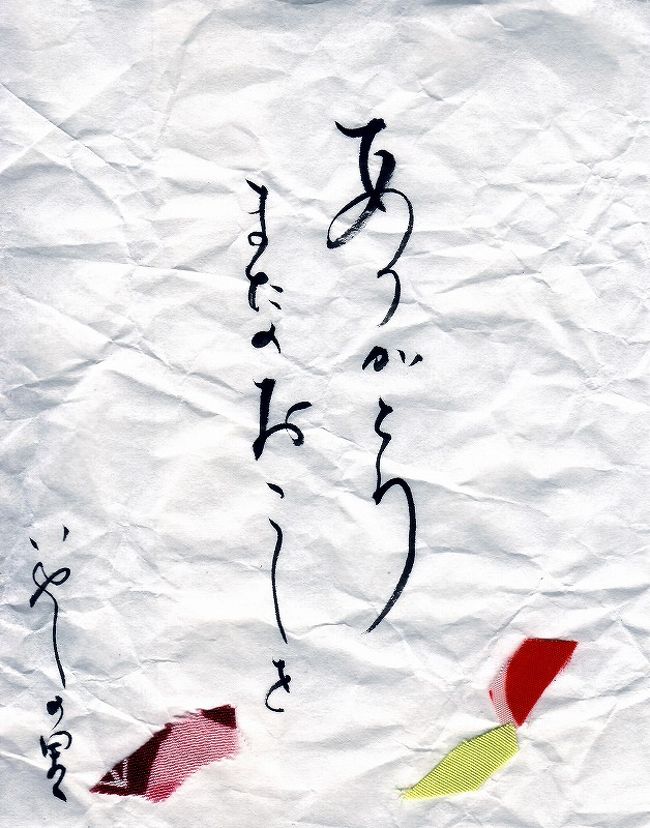 ありかとう
またのおこしを
いやしの里